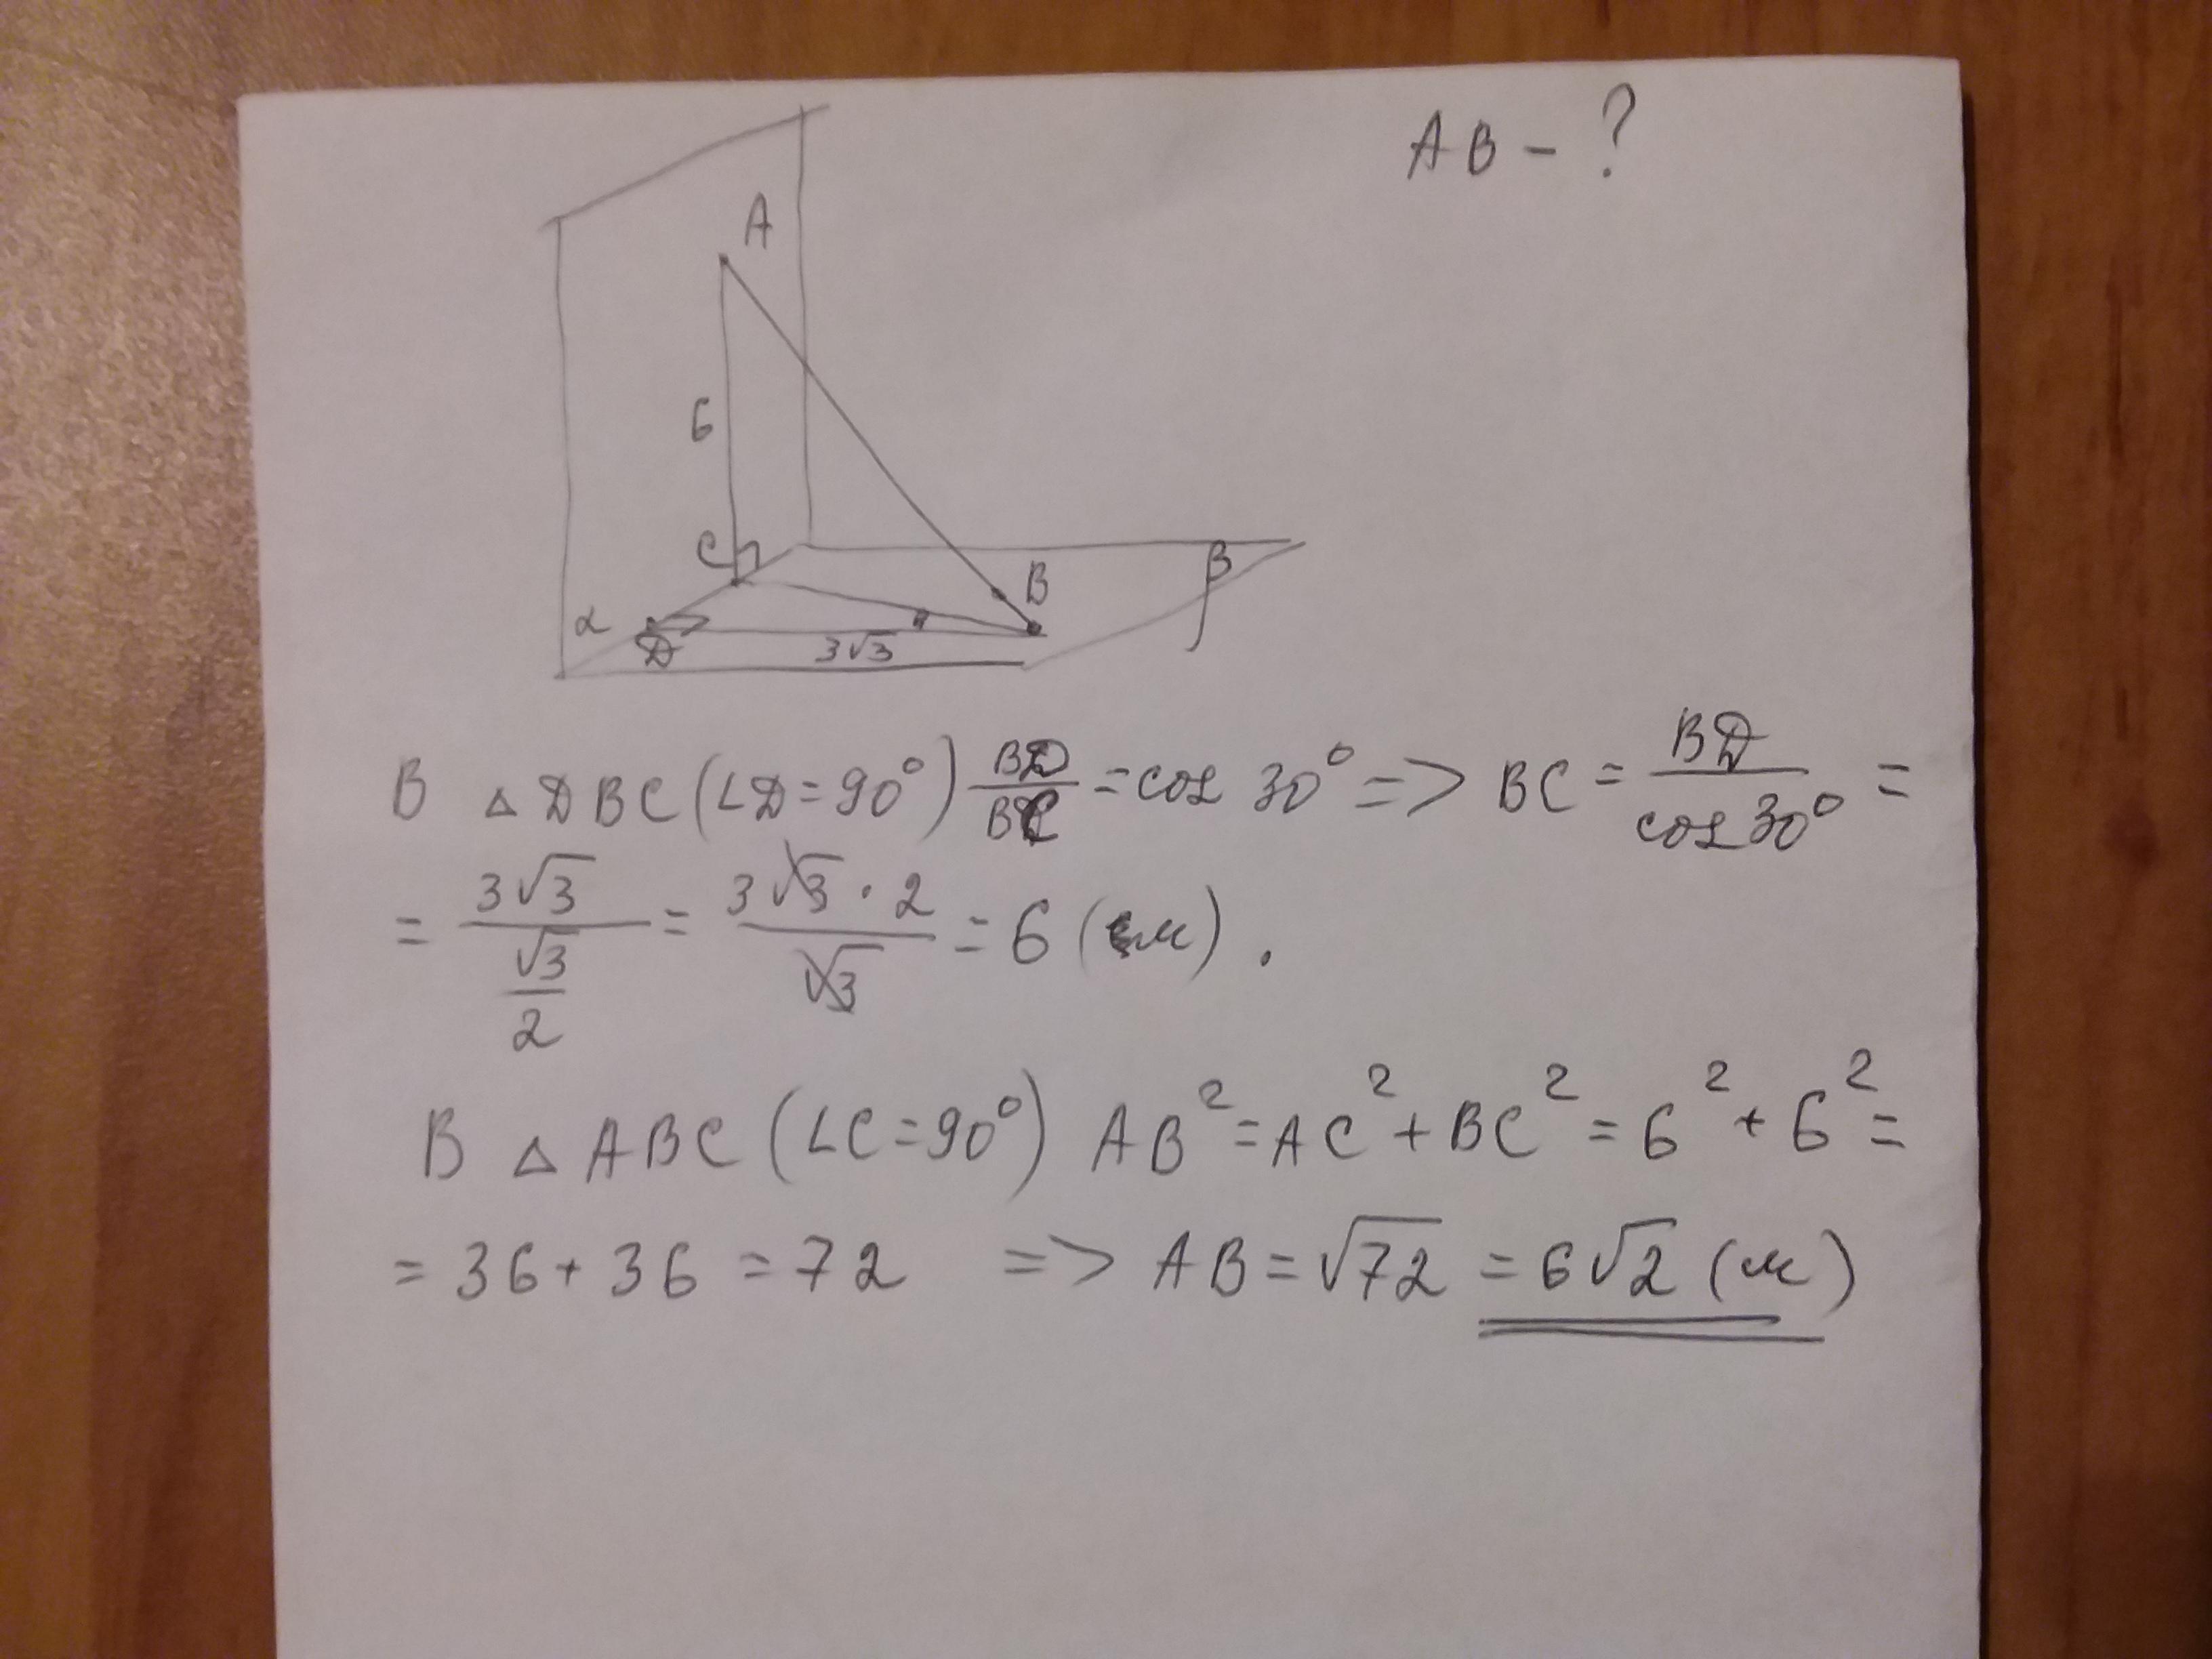 AB - ?
A
6
C
B
β
α
D
3√3
В △DBC (∠D=90°) BD/BC = cos 30° => BC = BD/cos 30° =
= 3√3/(√3/2) = 3√3 · 2/√3 = 6 (м).
В △ABC (∠C=90°) AB² = AC² + BC² = 6² + 6² =
= 36 + 36 = 72 => AB = √72 = 6√2 (м)